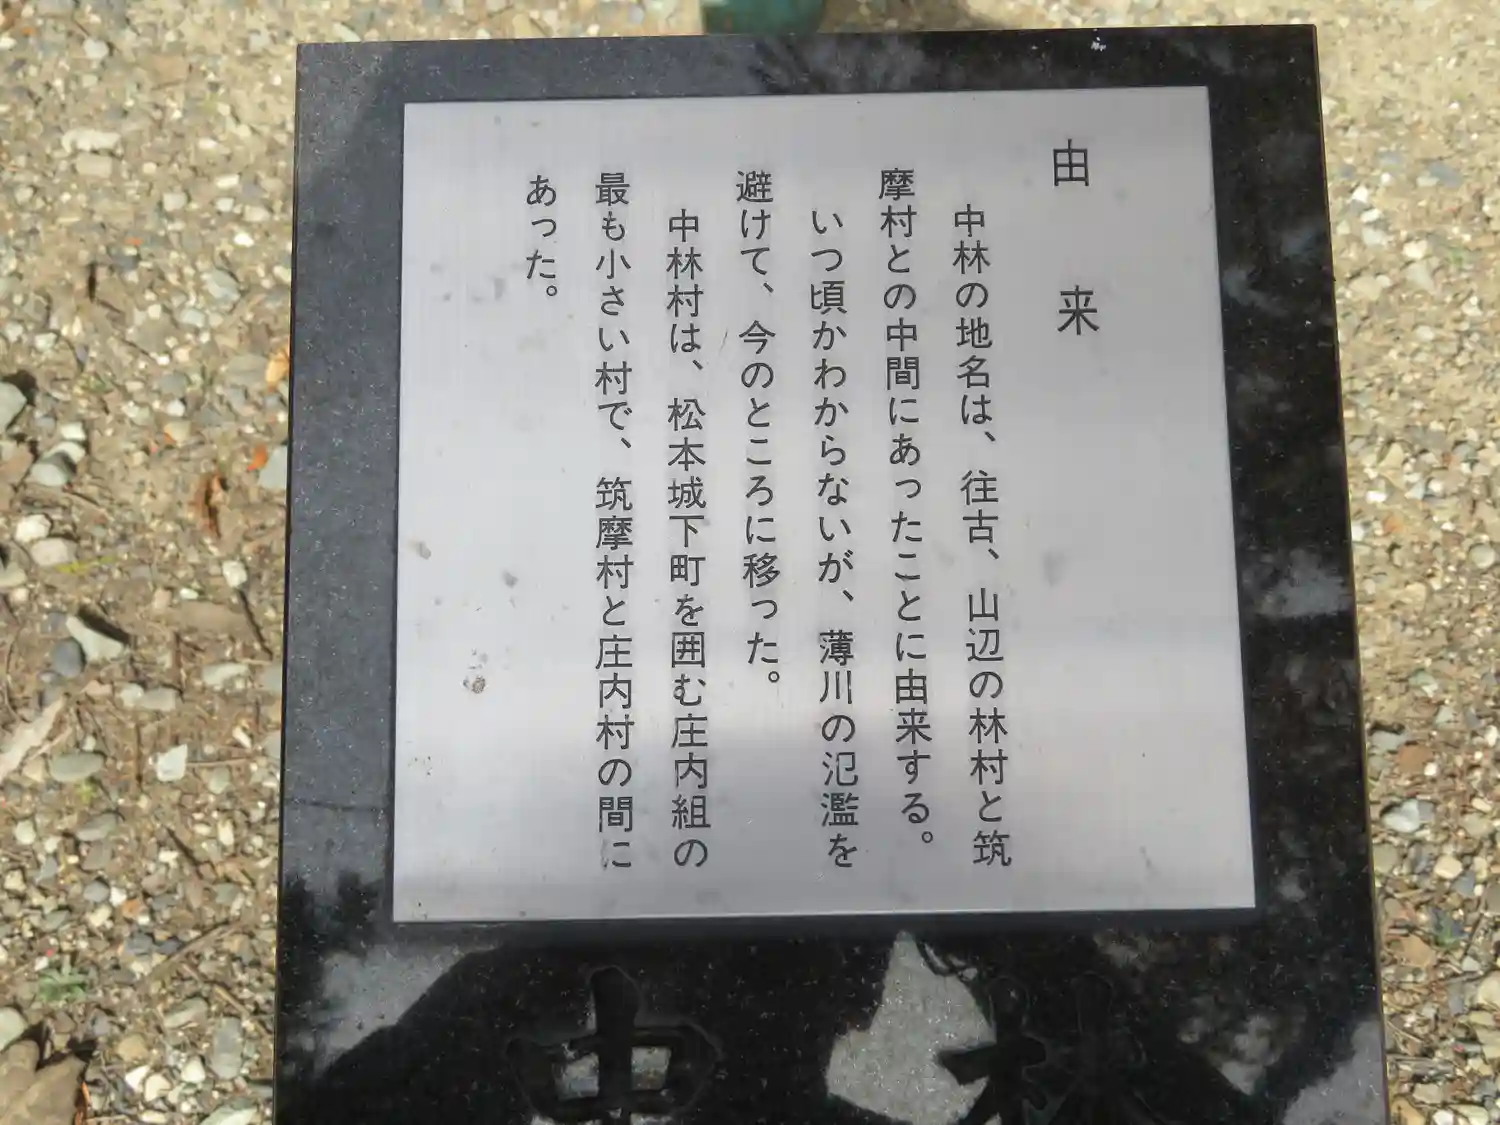 由来
中林の地名は、往古、山辺の林村と筑
摩村との中間にあったことに由来する。
いつ頃かわからないが、薄川の氾濫を
避けて、今のところに移った。
中林村は、松本城下町を囲む庄内組の
最も小さい村で、筑摩村と庄内村の間に
あった。
中林